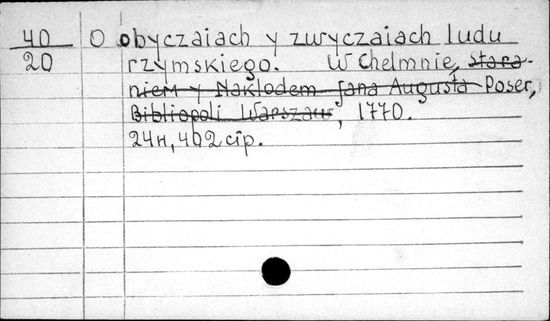 40 О obyczaiach y zwyczaiach ludu
20 rzymskiego. W Chełmnie, stara-
niem y Nakłodem Jana Augusta Poser,
Bibliopoli Warszaw, 1770.
24н, 402 стр.